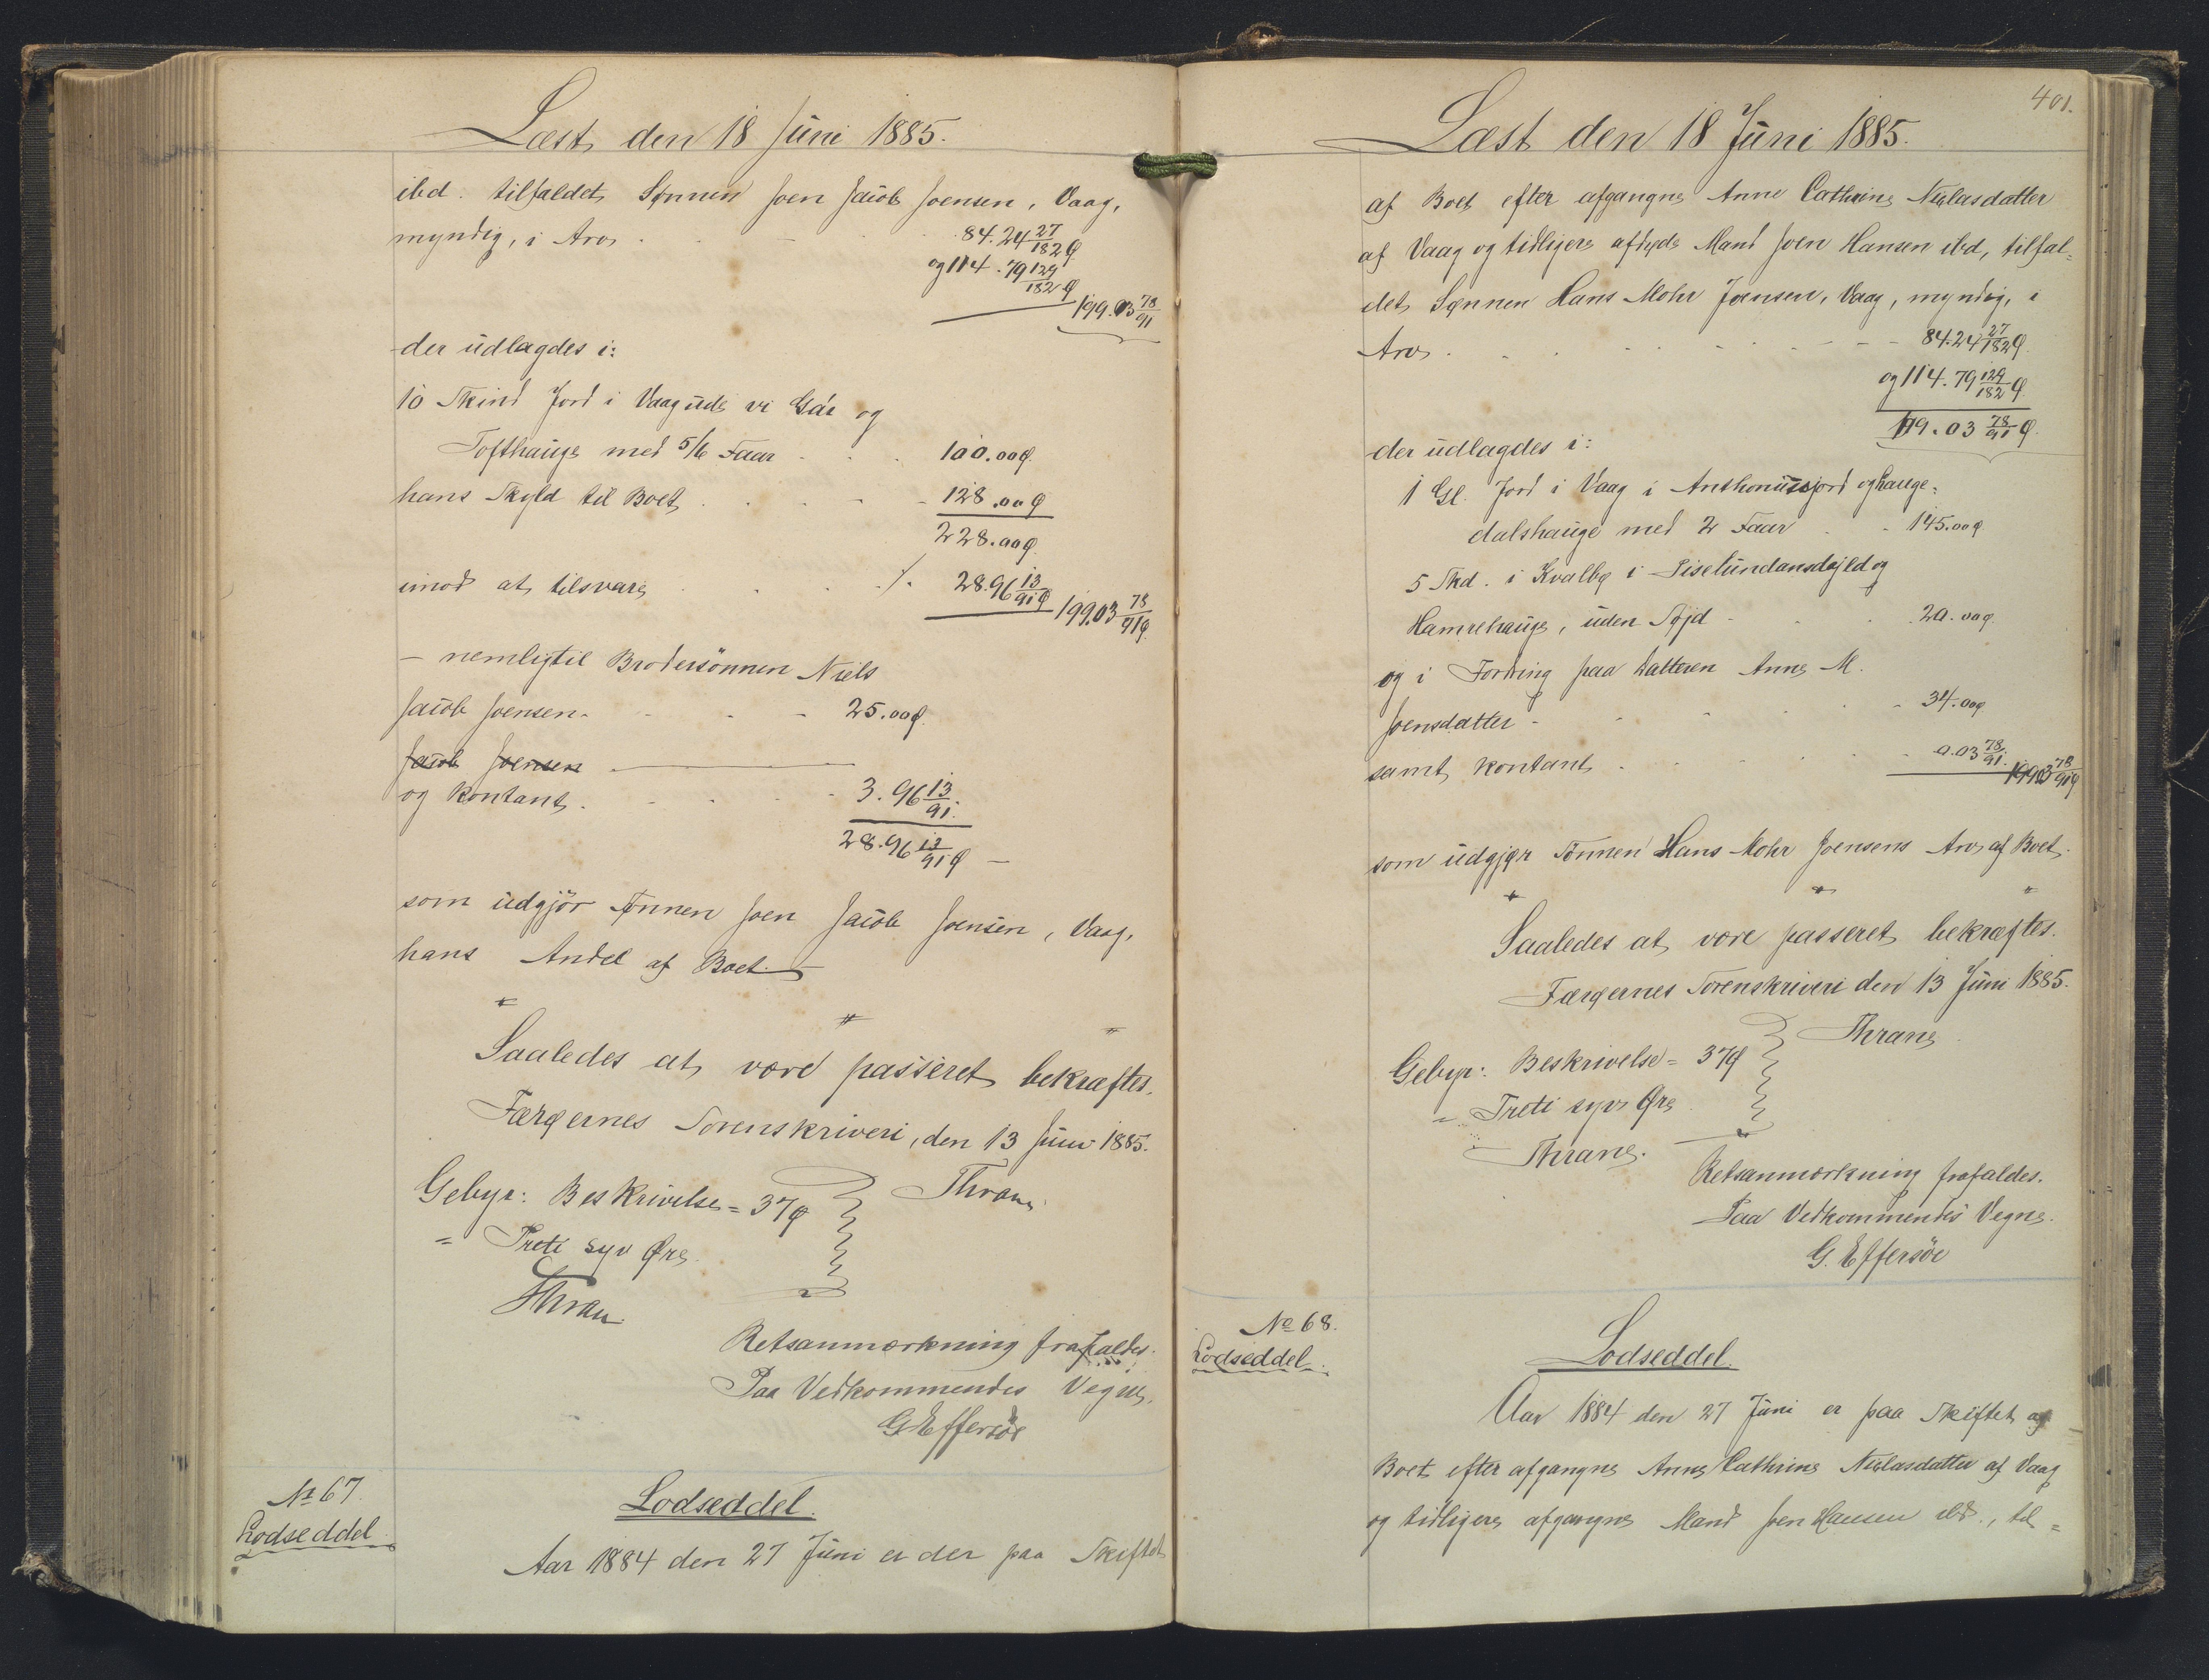 Læst den 18 Juni 1885.
ibd. tilfaldet Sønnen Joen Jacob Joensen, Vaag,
myndig, i Arv . 84.24 27/182 Ø
og 114.79 129/182 Ø
199.03 78/91
der udlagdes i:
10 Skind Jord i Vaag ude vi Gár og
Tofthauge med 5/6 Faar . . 100.00 Ø.
hans Skyld til Boet . . . 128.00 Ø
228.00 Ø.
imod at tilsvare . . ./. 28.96 13/91 Ø 199.03 78/91 Ø.
– nemlig til Brodersønnen Niels
Jacob Joensen . . . 25.00 Ø.
Jacob Joensen
og kontant . . . 3.96 13/91.
28.96 13/91 Ø –
som udgjör Sønnen Joen Jacob Joensen, Vaag,
hans Andel af Boet. –
" " "
Saaledes at være passeret bekræftes.
Færøernes Sorenskriveri, den 13 Juni 1885.
Gebyr: Beskrivelse = 37 Ø Thrane
= Treti syv Øre.
Thrane.
Retsanmærkning frafaldes.
Paa Vedkommendes Vegne.
G Effersöe
№ 67.
Lodseddel
Lodseddel.
Aar 1884 den 27 Juni er der paa Skiftet
401.
Læst den 18 Juni 1885.
af Boet efter afgangne Anne Cathrine Niclasdatter
af Vaag og tidligere afdøde Mand Joen Hansen ibd, tilfal=
det Sønnen Hans Mohr Joensen, Vaag, myndig, i
Arv . . . 84.24 27/182 Ø.
og 114.79 129/182 Ø.
199.03 78/91 Ø.
der udlagdes i:
1 Gl. Jord i Vaag i Anthoniusjord og hauge=
dalshauge med 2 Faar . . 145.00 Ø.
5 Skd. i Kvalbø i og
Hamrehauge, uden Søjd . . . 20.00 Ø.
og i Fordring paa Datteren Anne M.
Joensdatter . . . 34.00 Ø
samt kontant . . . 0.03 78/91. 199.03 78/91 Ø
som udgjør Sönnen Hans Mohr Joensens Arv af Boet.
" " "
Saaledes at være passeret bekræftes.
Færøernes Sorenskriveri den 13 Juni 1885.
Thrane
Gebyr: Beskrivelse = 37 Ø
= Treti syv Øre
Thrane.
Retsanmærkning frafaldes.
Paa Vedkommendes Vegne.
G. Effersöe
№ 68.
Lodseddel.
Lodseddel.
Aar 1884 den 27 Juni er paa Skiftet af
Boet efter afgangne Anne Cathrine Niclasdatter af Vaag
og tidligere afgangne Mand Joen Hansen ibd., til=